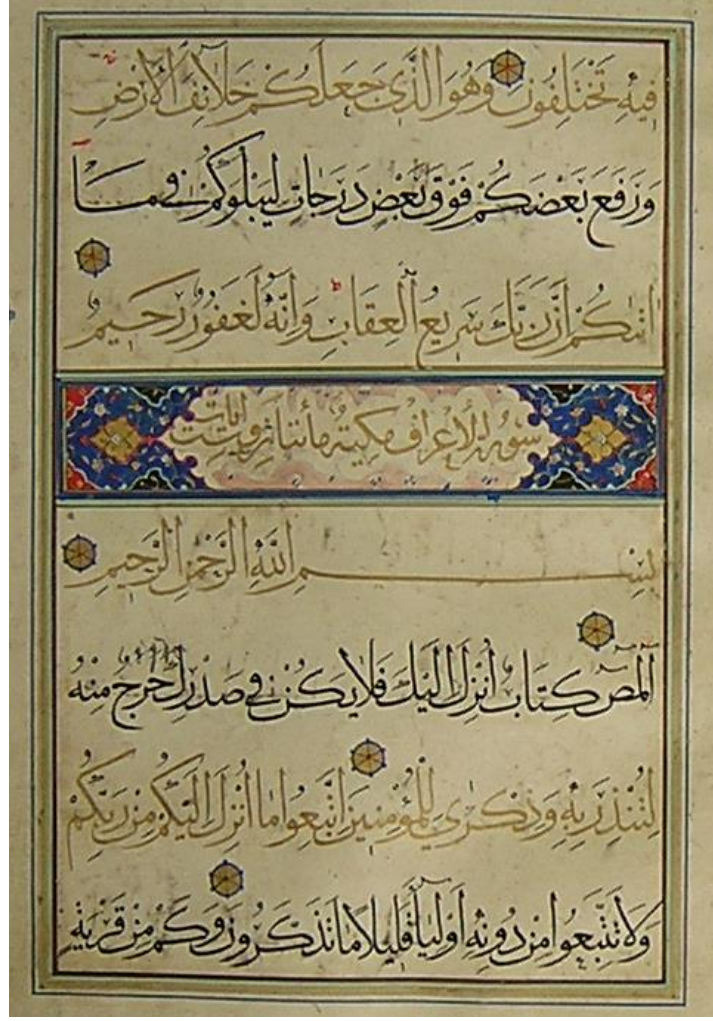 فِيهِ تَخْتَلِفُونَ وَهُوَ الَّذِي جَعَلَكُمْ خَلَائِفَ الْأَرْضِ
وَرَفَعَ بَعْضَكُمْ فَوْقَ بَعْضٍ دَرَجَاتٍ لِيَبْلُوَكُمْ فِي مَا
اٰتٰكُمْ اِنَّ رَبَّكَ سَرِيعُ الْعِقَابِ وَاِنَّهُ لَغَفُورٌ رَحِيمٌ
سورة الأعراف مكية مائتا وست ايات
بِسْمِ اللّٰهِ الرَّحْمٰنِ الرَّحِيمِ
الٓمٓصٓ كِتَابٌ اُنْزِلَ اِلَيْكَ فَلَا يَكُنْ فِي صَدْرِكَ حَرَجٌ مِنْهُ
لِتُنْذِرَ بِهِ وَذِكْرَى لِلْمُؤْمِنِينَ اتَّبِعُوا مَا اُنْزِلَ اِلَيْكُمْ مِنْ رَبِّكُمْ
وَلَا تَتَّبِعُوا مِنْ دُونِهِ اَوْلِيَآءَ قَلِيلًا مَا تَذَكَّرُونَ وَكَمْ مِنْ قَرْيَةٍ